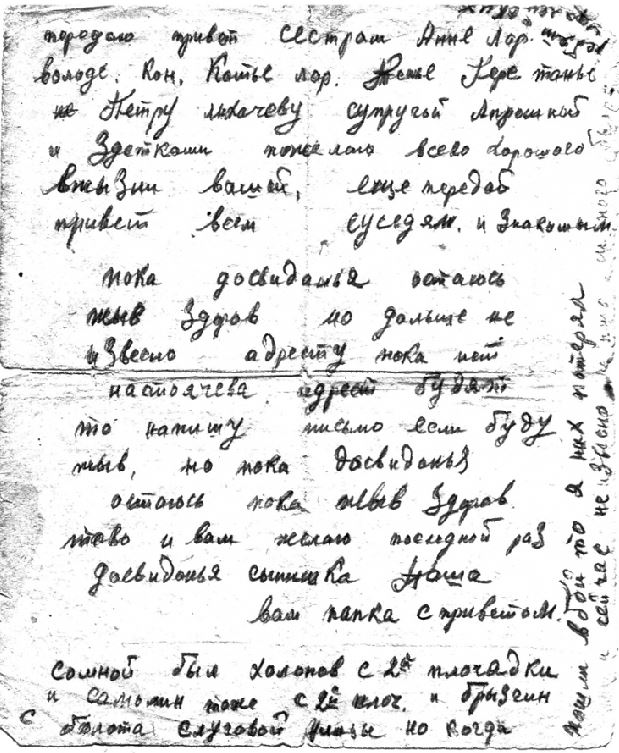 передаю привет сестрам Анне Лар.
володе, Кон, Катье лар. Гере танье
Петру лихачеву супругой Апрошкой
и Здетками пожелаю всево хорошого
вжызни вашей, еще передай
привет всем суседям. и Знакомым.
пока досвиданья остаюсь
жыв Здоров но дальше не
иЗвесно адресту пока нет
настоячева адрест будят
то напишу письмо если буду
жыв, но пока досвиданья
остаюсь пока жыв Здоров
тово и вам желаю последной раз
досвиданья сынишка Паша
вам папка с приветом.
сомной был Холопов с 2ой плочадки
и Самолин тоже с 2ой плоч. и Брызгин
с болота Слуговой улицы но когда
пошли вбой то я них потерял
и сейчас не иЗвесно